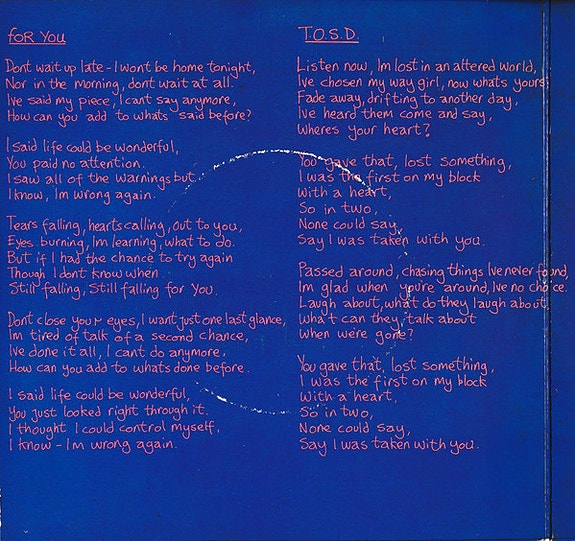 FOR YOU
Dont wait up late - I wont be home tonight,
Nor in the morning, dont wait at all.
Ive said my piece, I cant say anymore,
How can you add to whats said before?
I said life could be wonderful,
You paid no attention.
I saw all of the warnings but
I know, Im wrong again.
Tears falling, hearts calling, out to you,
Eyes burning, Im learning, what to do.
But if I had the chance to try again
Though I dont know when.
Still falling, Still falling for you.
Dont close your eyes, I want just one last glance,
Im tired of talk of a second chance,
Ive done it all, I cant do anymore,
How can you add to whats done before.
I said life could be wonderful,
You just looked right through it.
I thought I could control myself,
I know - Im wrong again.
T.O.S.D.
Listen now, Im lost in an attered world,
Ive chosen my way girl, now whats yours
Fade away, drifting to another day,
Ive heard them come and say,
Wheres your heart?
You gave that, lost something,
I was the first on my block
With a heart,
So in two,
None could say,
Say I was taken with you.
Passed around, chasing things Ive never found,
Im glad when you're around, Ive no choice.
Laugh about, what do they laugh about
What can they talk about
When we're gone?
You gave that, lost something,
I was the first on my block
With a heart,
So in two,
None could say,
Say I was taken with you.